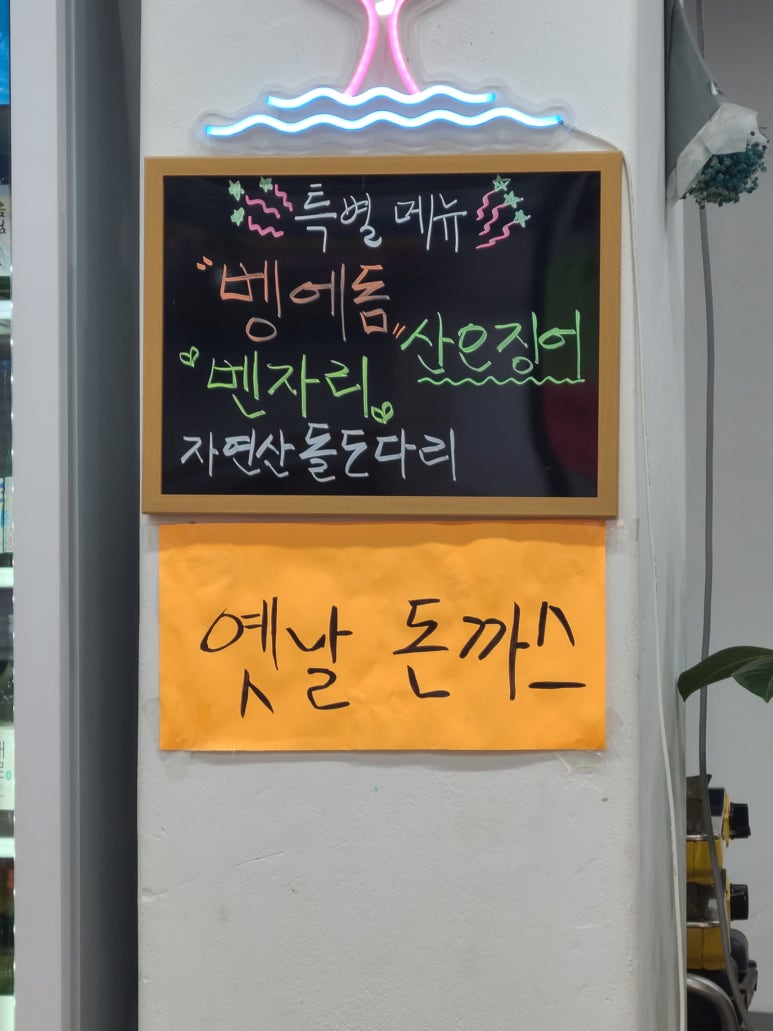 특별 메뉴
"벵에돔"
산오징어
벤자리
자연산돌돈다리
옛날 돈까스